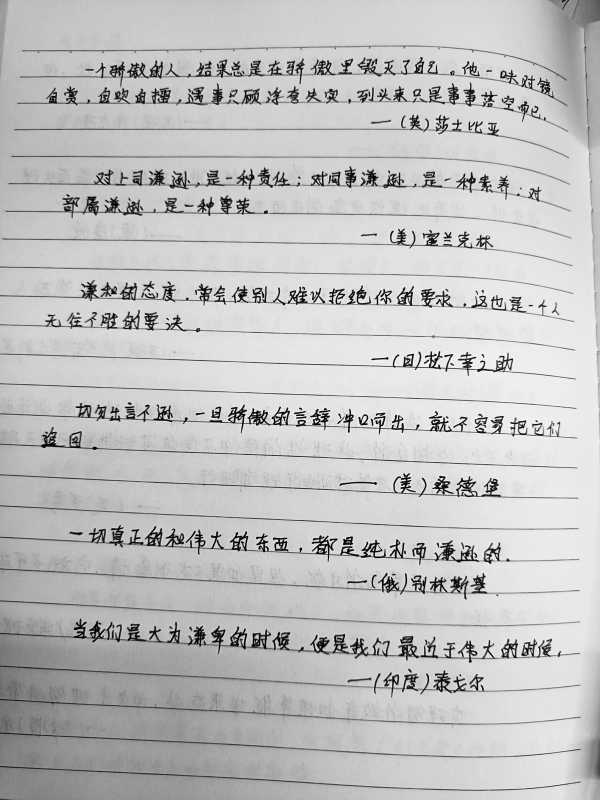 一个骄傲的人，结果总是在骄傲里毁灭了自己。他一味对镜
自赏，自吹自擂，遇事只顾浮夸失实，到头来只是事事落空而已。
—（英）莎士比亚
对上司谦逊，是一种责任；对同事谦逊，是一种素养；对
部属谦逊，是一种尊荣。
—（美）富兰克林
谦和的态度，常会使别人难以拒绝你的要求，这也是一个人
无往不胜的要诀。
—（日）松下幸之助
切勿出言不逊，一旦骄傲的言辞冲口而出，就不容易把它们
追回。
——（美）桑德堡
一切真正的和伟大的东西，都是纯朴而谦逊的.
—（俄）别林斯基
当我们是大为谦卑的时候，便是我们最近于伟大的时候，
—（印度）泰戈尔